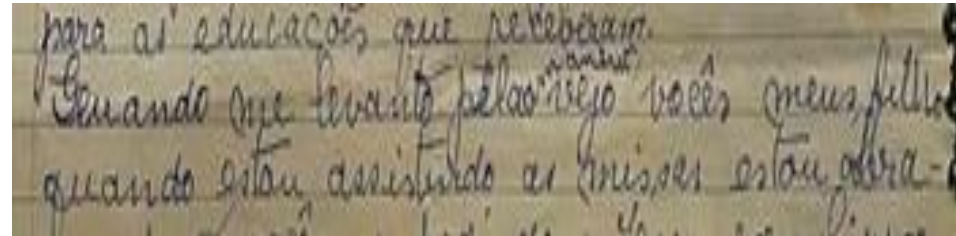 para as educações que receberam.
Quando me levanto pelas manhã vejo vocês meus filh
quando estou assistindo as missas estou abra-